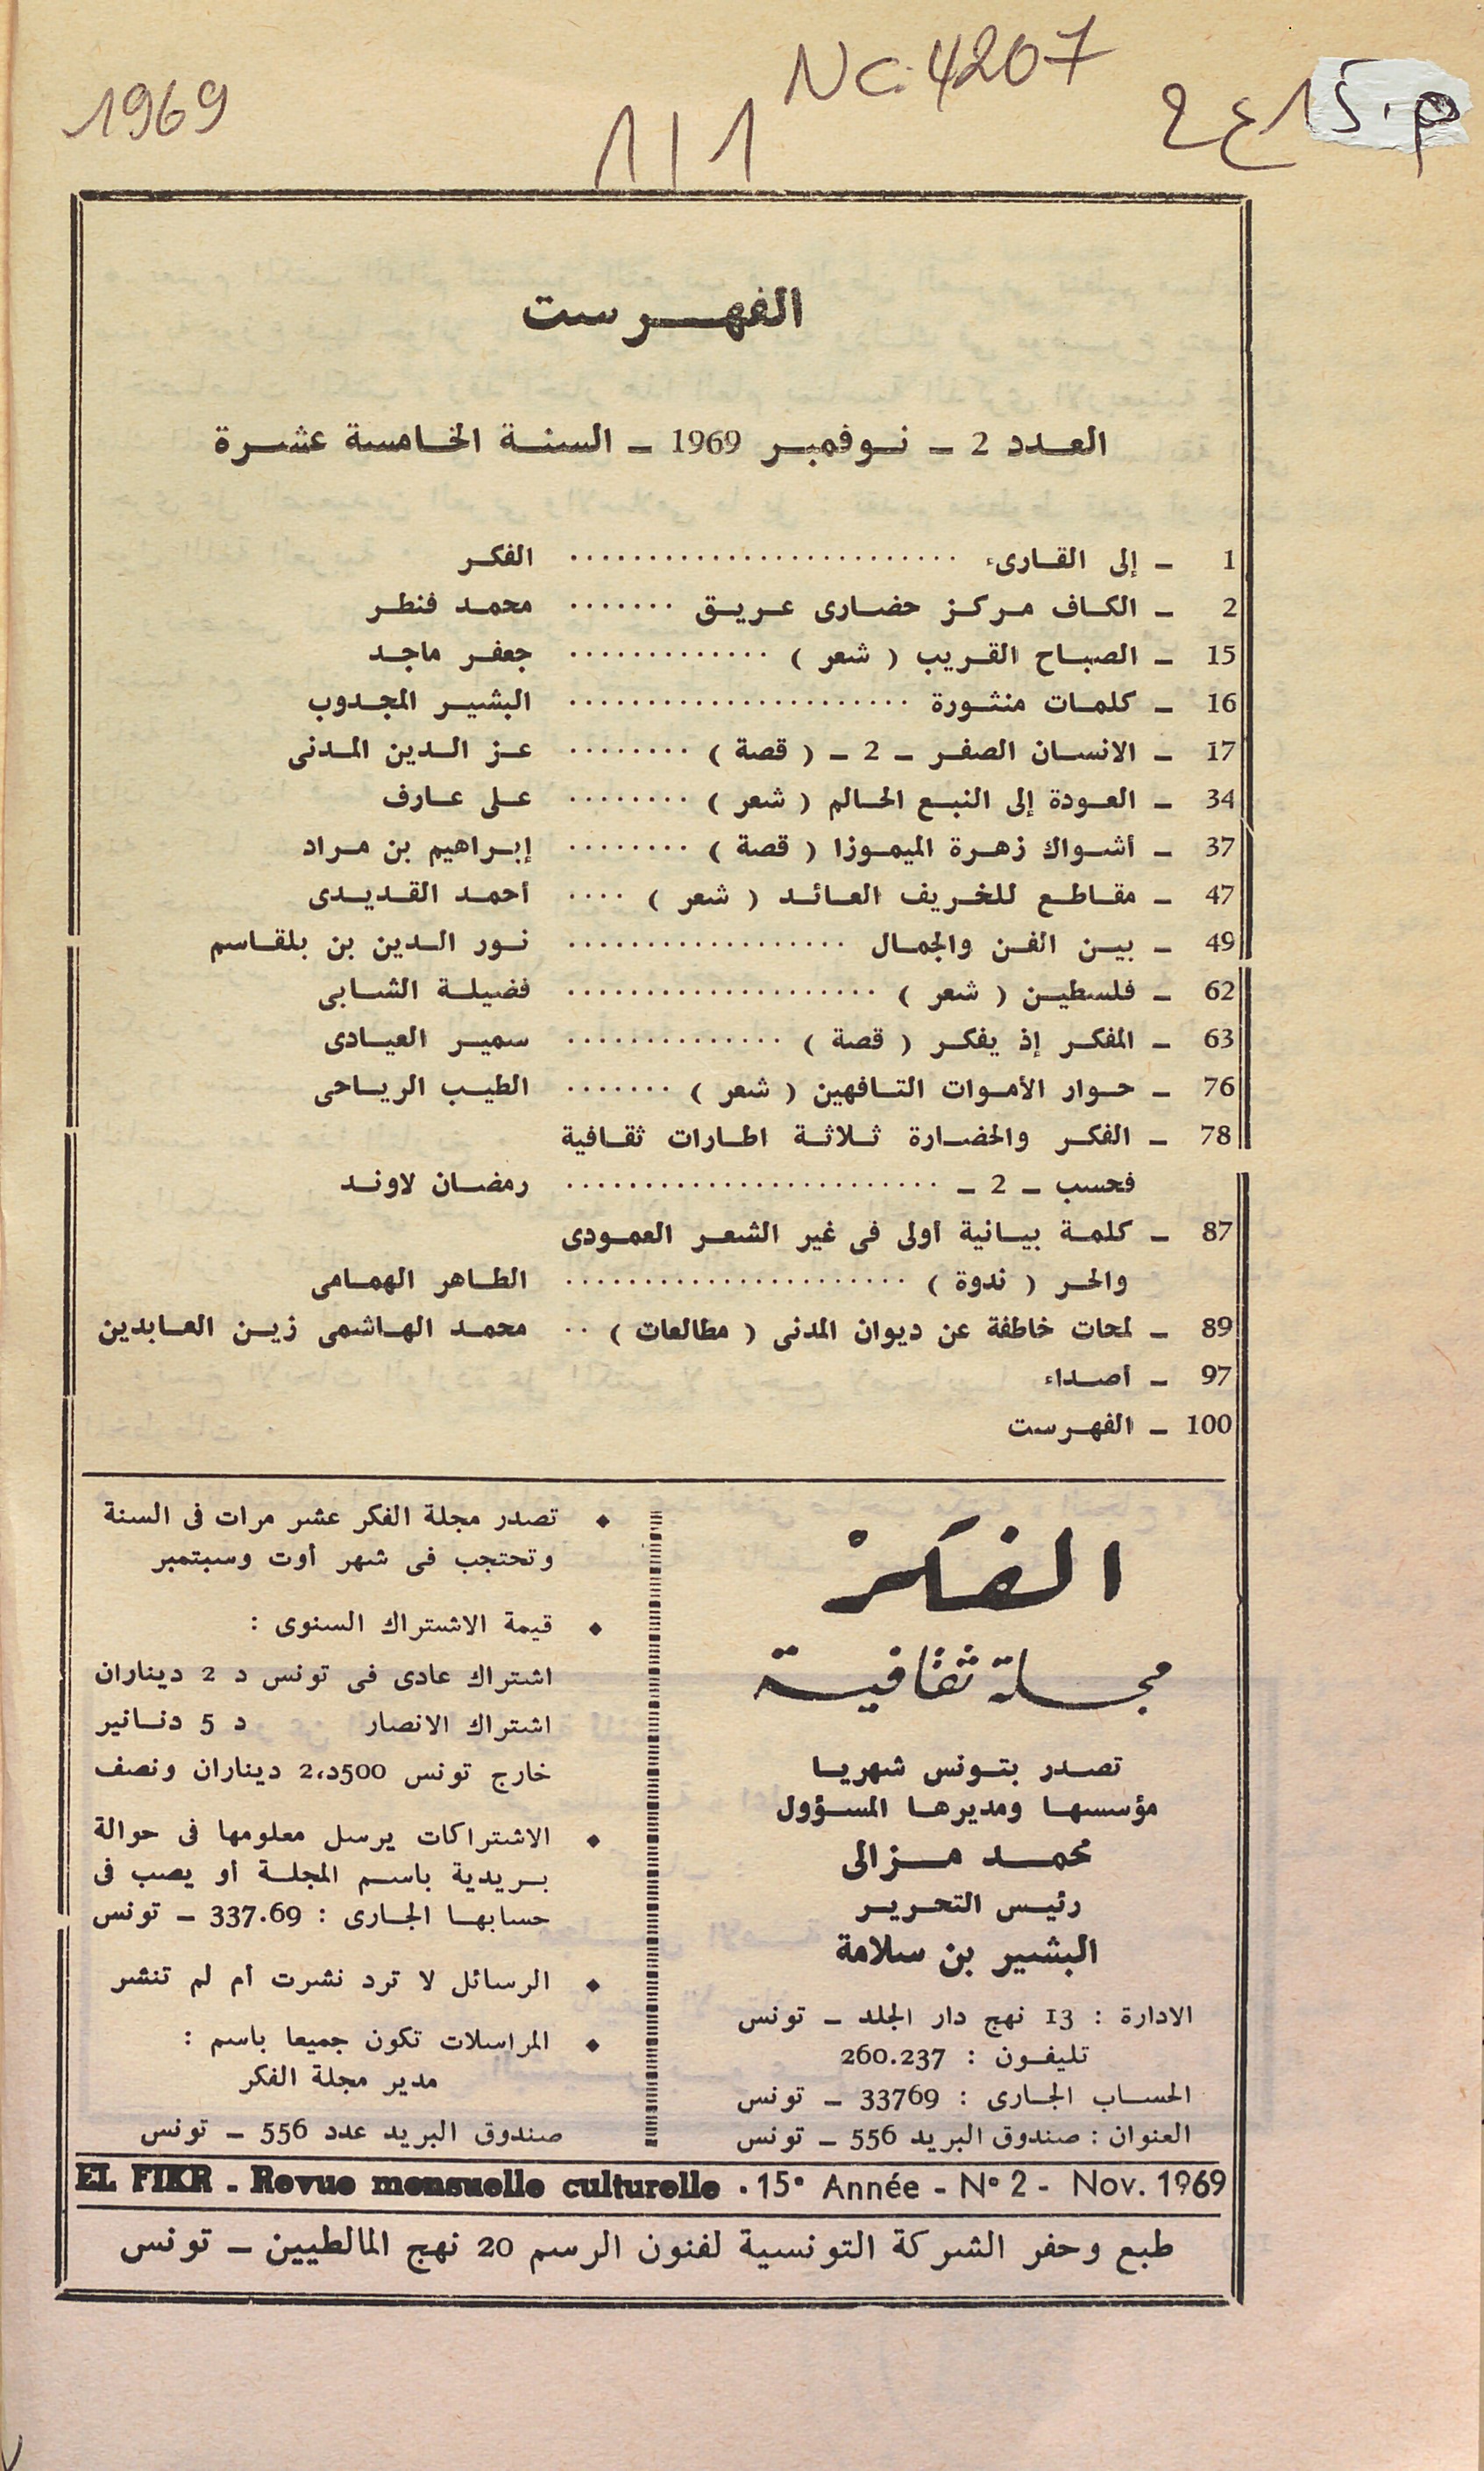 NC:4207
1969
1 | 1
الفهرست
العدد 2 - نوفمبر 1969 - السنة الخامسة عشرة
1 - إلى القارىء ........................ الفكر
2 - الكاف مركز حضارى عريق ....... محمد فنطر
15 - الصباح القريب ( شعر ) ............. جعفر ماجد
16 - كلمات منثورة ...................... البشير المجدوب
17 - الانسان الصفر - 2 - ( قصة ) ........ عز الدين المدنى
34 - العودة إلى النبع الحالم ( شعر ) ........ على عارف
37 - أشواك زهرة الميموزا ( قصة ) ........ إبراهيم بن مراد
47 - مقاطع للخريف العائد ( شعر ) .... أحمد القديدى
49 - بين الفن والجمال .................. نور الدين بن بلقاسم
62 - فلسطين ( شعر ) .................... فضيلة الشابى
63 - المفكر إذ يفكر ( قصة ) .............. سمير العيادى
76 - حوار الأموات التافهين ( شعر ) ....... الطيب الرياحى
78 - الفكر والحضارة ثلاثة اطارات ثقافية
فحسب - 2 - ........................ رمضان لاوند
87 - كلمة بيانية أولى فى غير الشعر العمودى
والحر ( ندوة ) ...................... الطاهر الهمامى
89 - لمحات خاطفة عن ديوان المدنى ( مطالعات ) .. محمد الهاشمى زين العابدين
97 - أصداء
100 - الفهرست
الفكر
مجلة ثقافية
تصدر بتونس شهريا
مؤسسها ومديرها المسؤول
محمد مزالى
رئيس التحرير
البشير بن سلامة
الادارة : 13 نهج دار الجلد - تونس
تليفون : 260.237
الحساب الجارى : 33769 - تونس
العنوان : صندوق البريد 556 - تونس
♦ تصدر مجلة الفكر عشر مرات فى السنة
وتحتجب فى شهر أوت وسبتمبر
♦ قيمة الاشتراك السنوى :
اشتراك عادى فى تونس د 2 ديناران
اشتراك الانصار د 5 دنانير
خارج تونس 500د،2 ديناران ونصف
♦ الاشتراكات يرسل معلومها فى حوالة
بريدية باسم المجلة أو يصب فى
حسابها الجارى : 337.69 - تونس
♦ الرسائل لا ترد نشرت أم لم تنشر
♦ المراسلات تكون جميعا باسم :
مدير مجلة الفكر
صندوق البريد عدد 556 - تونس
EL FIKR - Revue mensuelle culturelle . 15° Année - N° 2 - Nov. 1969
طبع وحفر الشركة التونسية لفنون الرسم 20 نهج المالطيين - تونس